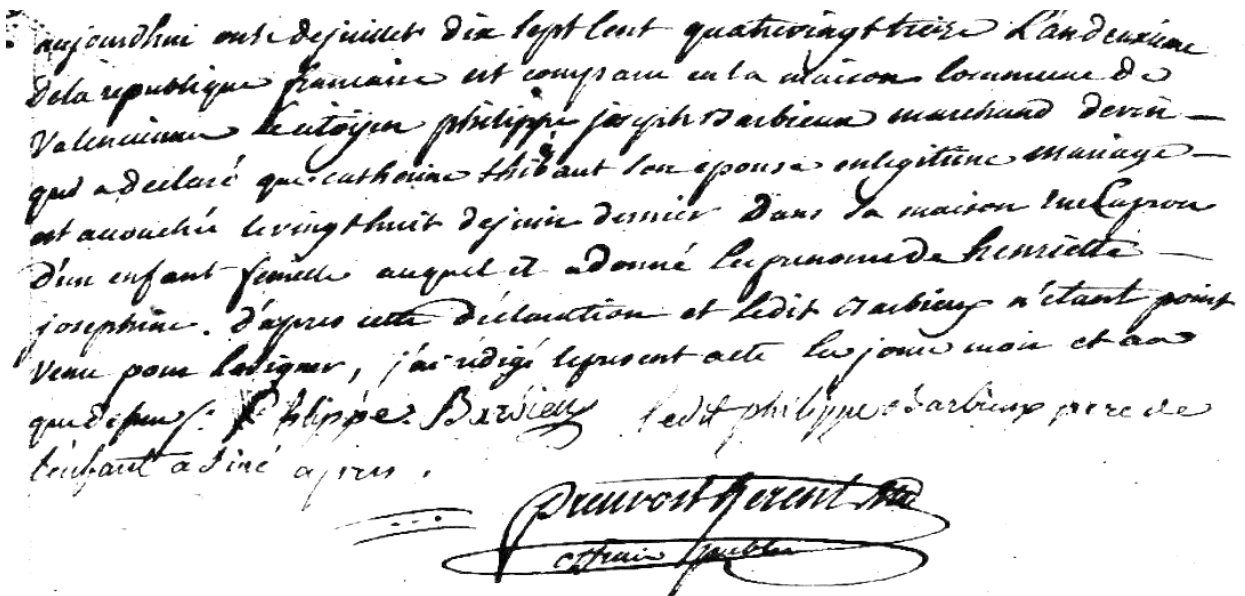 aujourdhui onze de juillet dix sept cent quatrevingt treize L'an deuxieme
De la republique francaise est comparu en la maison Commune de
Valenciennes le citoyen philippe joseph Barbieux marchand de vin
qui a declaré que catherine thibaut son epouse en legitime mariage
est accouchée le vingt huit de juin dernier Dans sa maison rue Capron
D'un enfant femelle auquel il a donné les prenoms de henriette
josephine. D'apres cette Déclaration et ledit Barbieux n'étant point
Venu pour la signer, j'ai rédigé le present acte les jour mois et an
que dessus /. Philippe Barbieux ledit philippe Barbieux pere de
l'enfant a siné apres.
preuvost herent
officier public